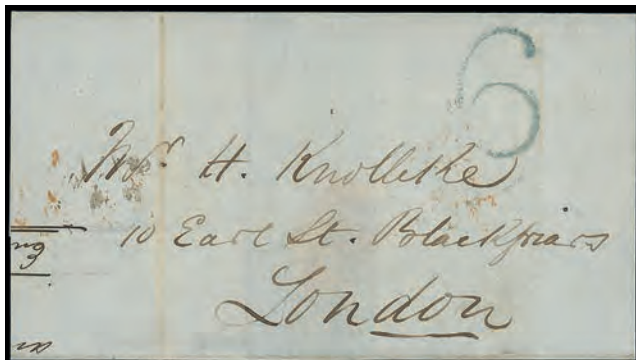 6
Mr. H. Knollethe
10 Earl St. Blackfriars
London